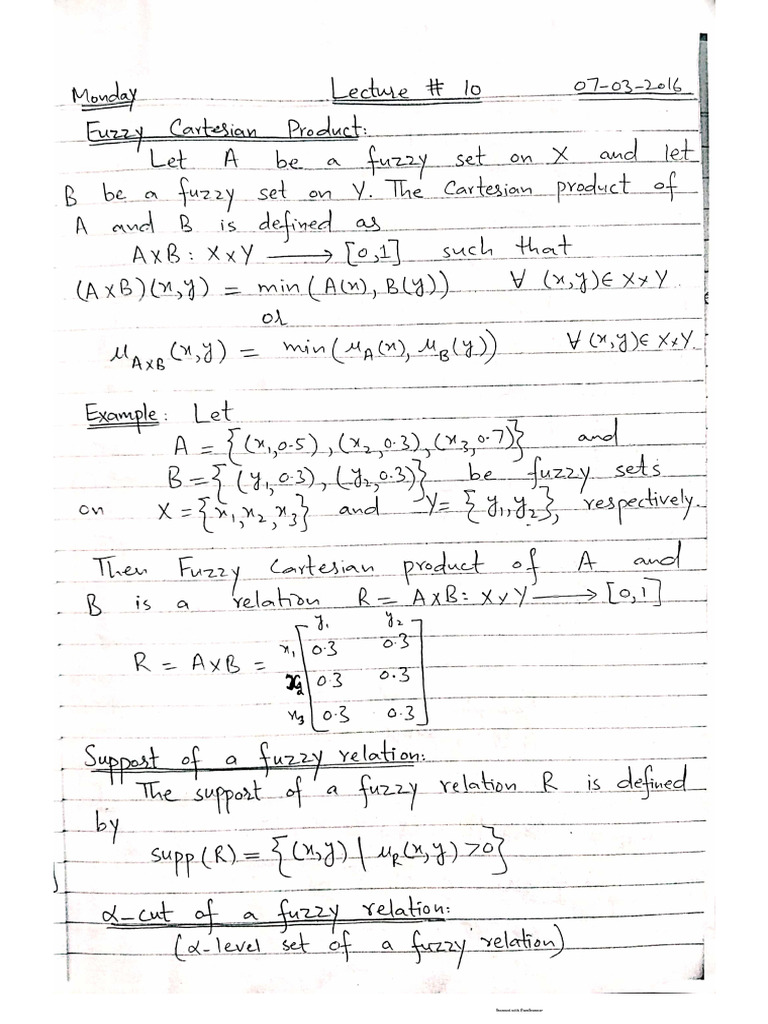 Monday Lecture # 10 07-03-2016
Fuzzy Cartesian Product:
Let A be a fuzzy set on X and let
B be a fuzzy set on Y. The Cartesian product of
A and B is defined as
A×B : X×Y ⟶ [0,1] such that
(A×B)(x,y) = min(A(x), B(y)) ∀ (x,y)∈ X×Y
or
μ_{A×B}(x,y) = min(μ_A(x), μ_B(y)) ∀ (x,y)∈ X×Y.
Example: Let
A = {(x₁,0.5), (x₂,0.3), (x₃,0.7)} and
B = {(y₁,0.3), (y₂,0.3)} be fuzzy sets
on X = {x₁,x₂,x₃} and Y = {y₁,y₂}, respectively.
Then Fuzzy Cartesian product of A and
B is a relation R = A×B : X×Y ⟶ [0,1]
y₁ y₂
x₁ 0.3 0.3
R = A×B = x₂ 0.3 0.3
x₃ 0.3 0.3
Support of a fuzzy relation:
The support of a fuzzy relation R is defined
by
supp(R) = {(x,y) | μ_R(x,y) >0}
α-cut of a fuzzy relation:
(α-level set of a fuzzy relation)
Scanned with CamScanner